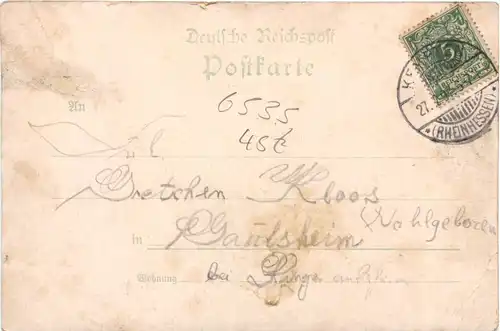 Deutsche Reichspost
Postkarte
An
6535
45€
Gretchen Kloos
Wohlgeboren
in Gaulsheim
Wohnung bei Bingen am Rhein
27.
(RHEINHESSEN)